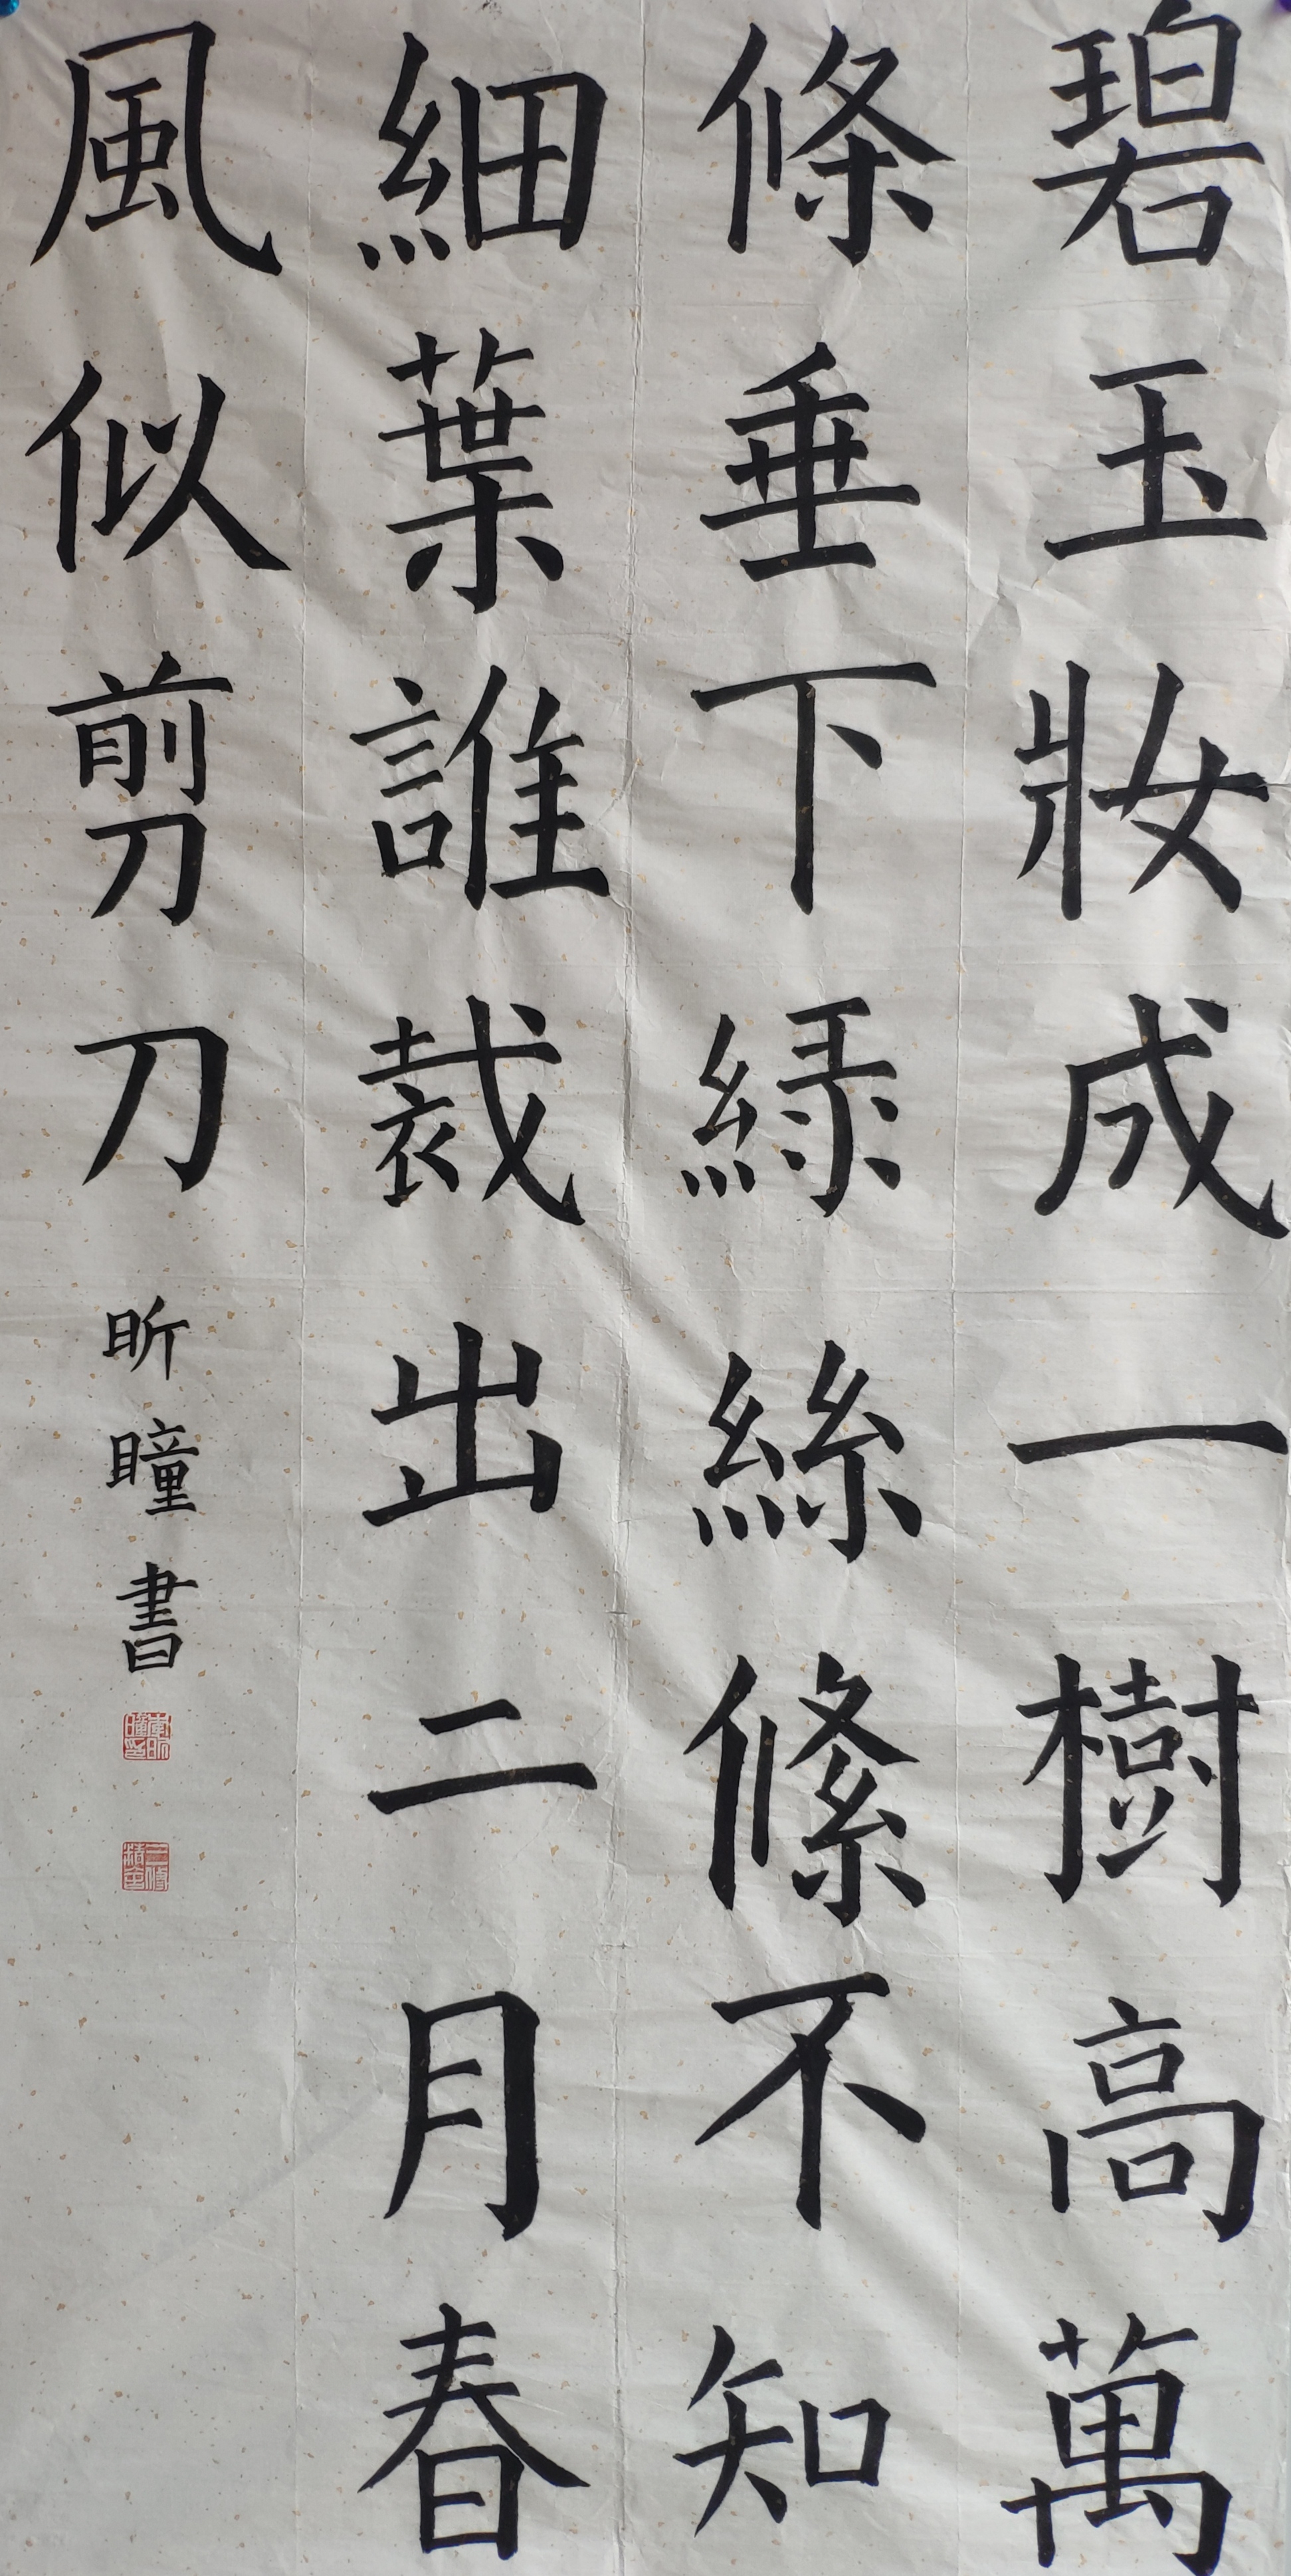 碧玉妝成一樹高萬
條垂下綠絲絛不知
細葉誰裁出二月春
風似剪刀
昕瞳書